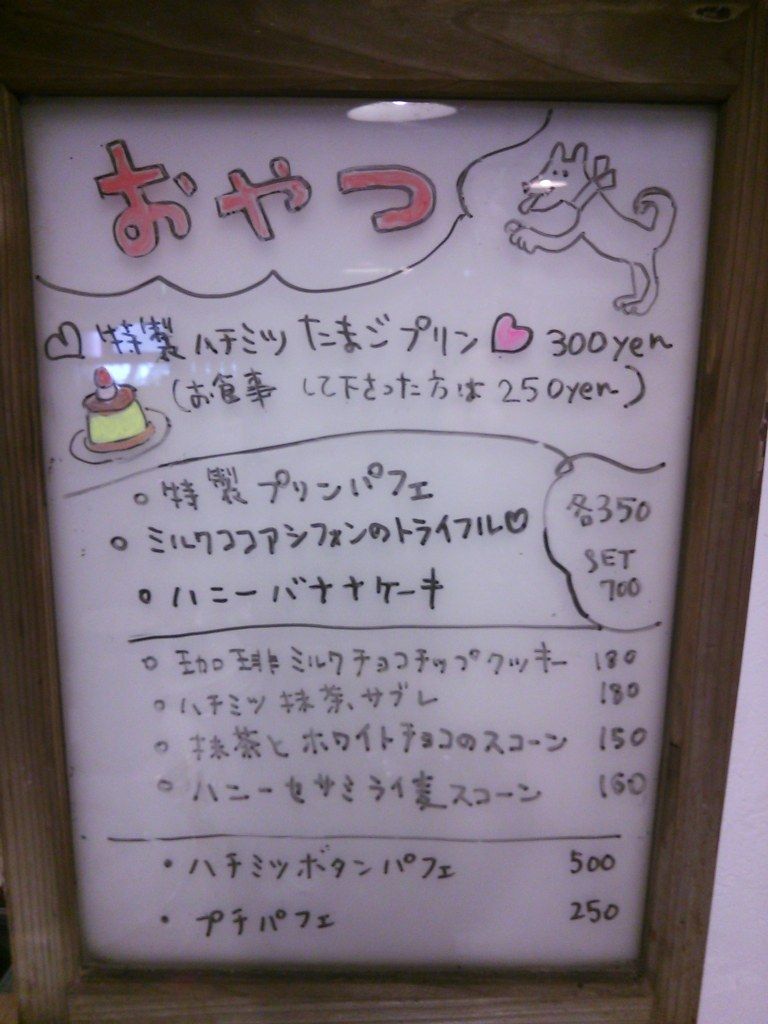 おやつ
特製 ハチミツ たまごプリン 300yen
(お食事して下さった方は 250yen)
特製 プリンパフェ
ミルクココアシフォンのトライフル
ハニーバナナケーキ
各350
SET
700
珈琲ミルクチョコチップクッキー 180
ハチミツ抹茶サブレ 180
抹茶とホワイトチョコのスコーン 150
ハニーセサミライ麦スコーン 160
ハチミツボタンパフェ 500
プチパフェ 250